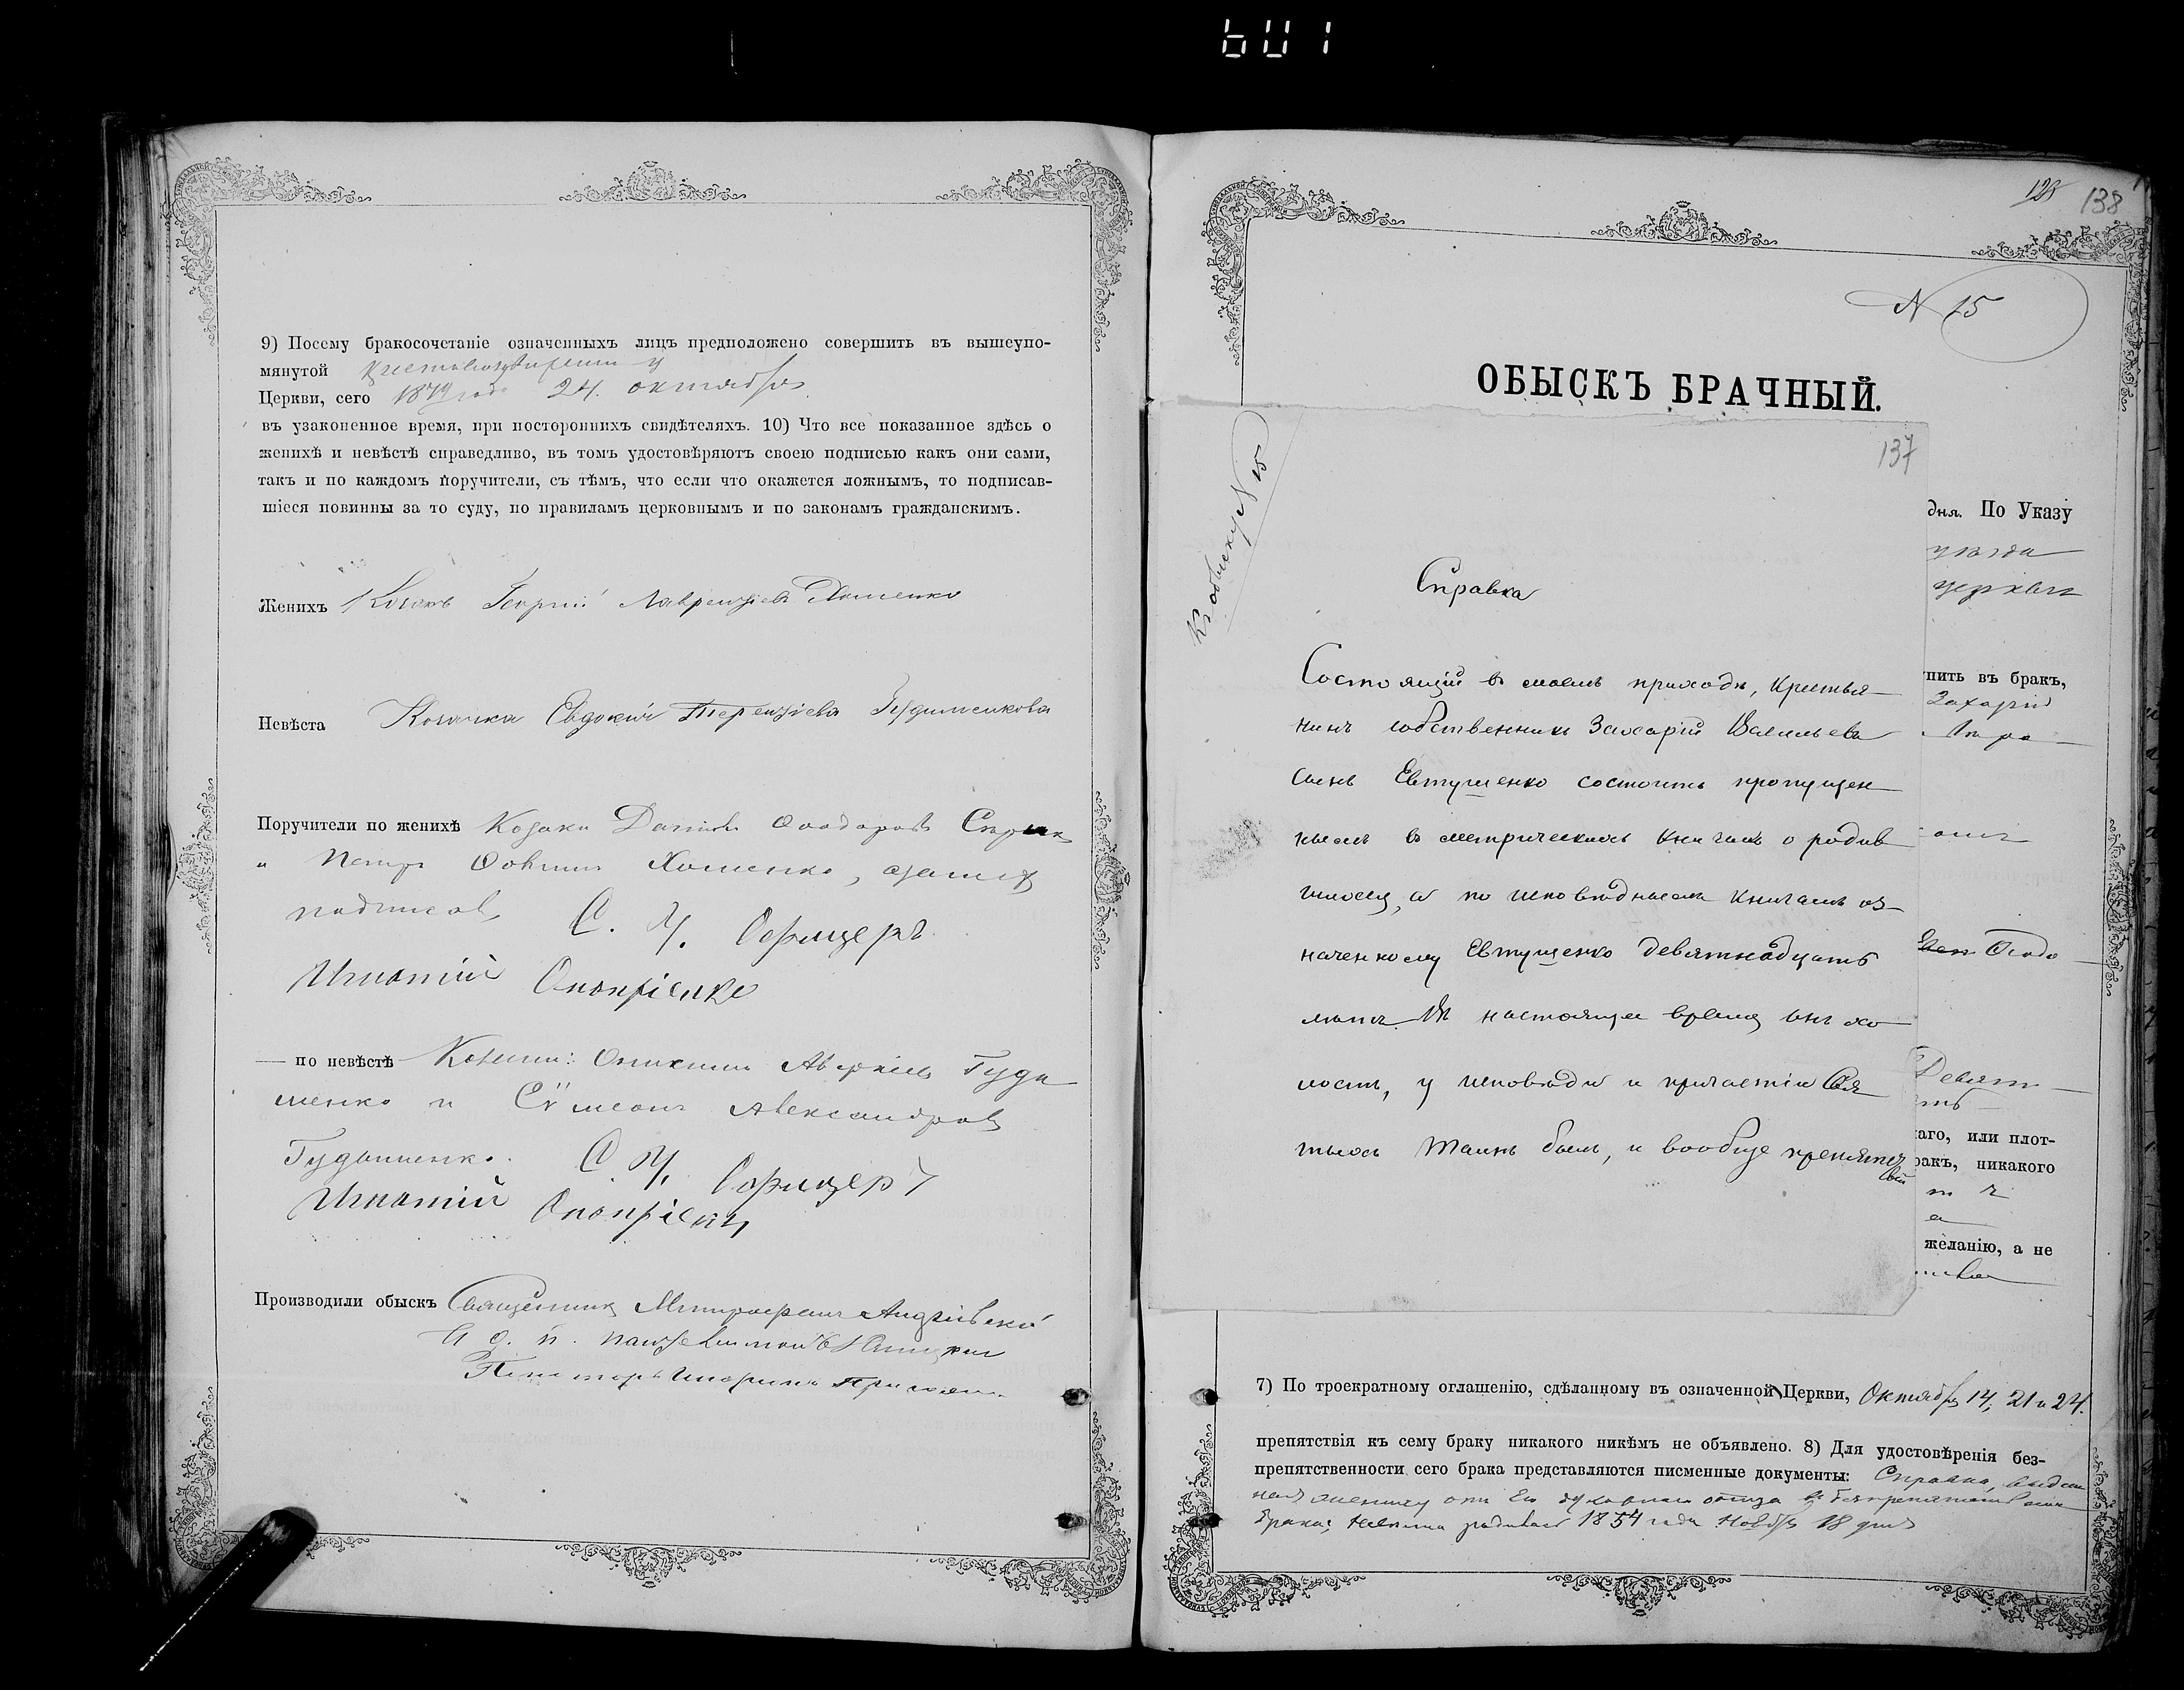 601
9) Посему бракосочетаніе означенныхъ лицъ предположено совершить въ вышеупо-
мянутой
Церкви, сего 1874 года 24 октября
въ узаконенное время, при постороннихъ свидѣтеляхъ. 10) Что все показанное здѣсь о
женихѣ и невѣстѣ справедливо, въ томъ удостовѣряютъ своею подписью какъ они сами,
такъ и по каждомъ поручители, съ тѣмъ, что если что окажется ложнымъ, то подписав-
шіеся повинны за то суду, по правиламъ церковнымъ и по законамъ гражданскимъ.
Женихъ Козакъ Георгій Лаврентіевъ
Невѣста Козачка Евдокія Терентіева Гудименкова
Поручители по женихѣ Козаки Даніилъ Ѳеодоровъ
и Петръ Хоменко, а за нихъ
подписалъ С. У. Офицеръ
Игнатій Оноприенко
— по невѣстѣ Козаки: Гуди
менко и Сѵмеонъ Александровъ
Гудименко. С. У. Офицеръ
Игнатій Оноприенко
Производили обыскъ Священникъ Митрофанъ
128 138
N 15
ОБЫСКЪ БРАЧНЫЙ.
Къ обыску N 15
137
Справка
Состоящій въ моемъ приходѣ, крестья-
нинъ собственникъ Захарій Васильевъ
сынъ Евтушенко состоитъ пропущен
нымъ въ метрическихъ книгахъ о родив
шихся, а по исповѣднымъ книгамъ оз-
наченному Евтушенко девятнадцать
лѣтъ. Въ настоящее время онъ хо-
лостъ, у исповѣди и причастія Свя
тыхъ Таинъ былъ, и вообще препятст
вій
дня. По Указу
уѣзда
церкви
пить въ бракъ,
Захарій
Ѳеодо
Девят
аго, или плот-
ракъ, никакого
желанію, а не
7) По троекратному оглашенію, сдѣланному въ означенной Церкви, Октября 14, 21 и 24.
препятствія къ сему браку никакого никѣмъ не объявлено. 8) Для удостовѣренія без-
препятственности сего брака представляются писменные документы: Справка, выдан
ная жениху отъ его духовнаго отца о безпрепятственн
брака; Невѣста родилась 1854 года Ноября 18 дня